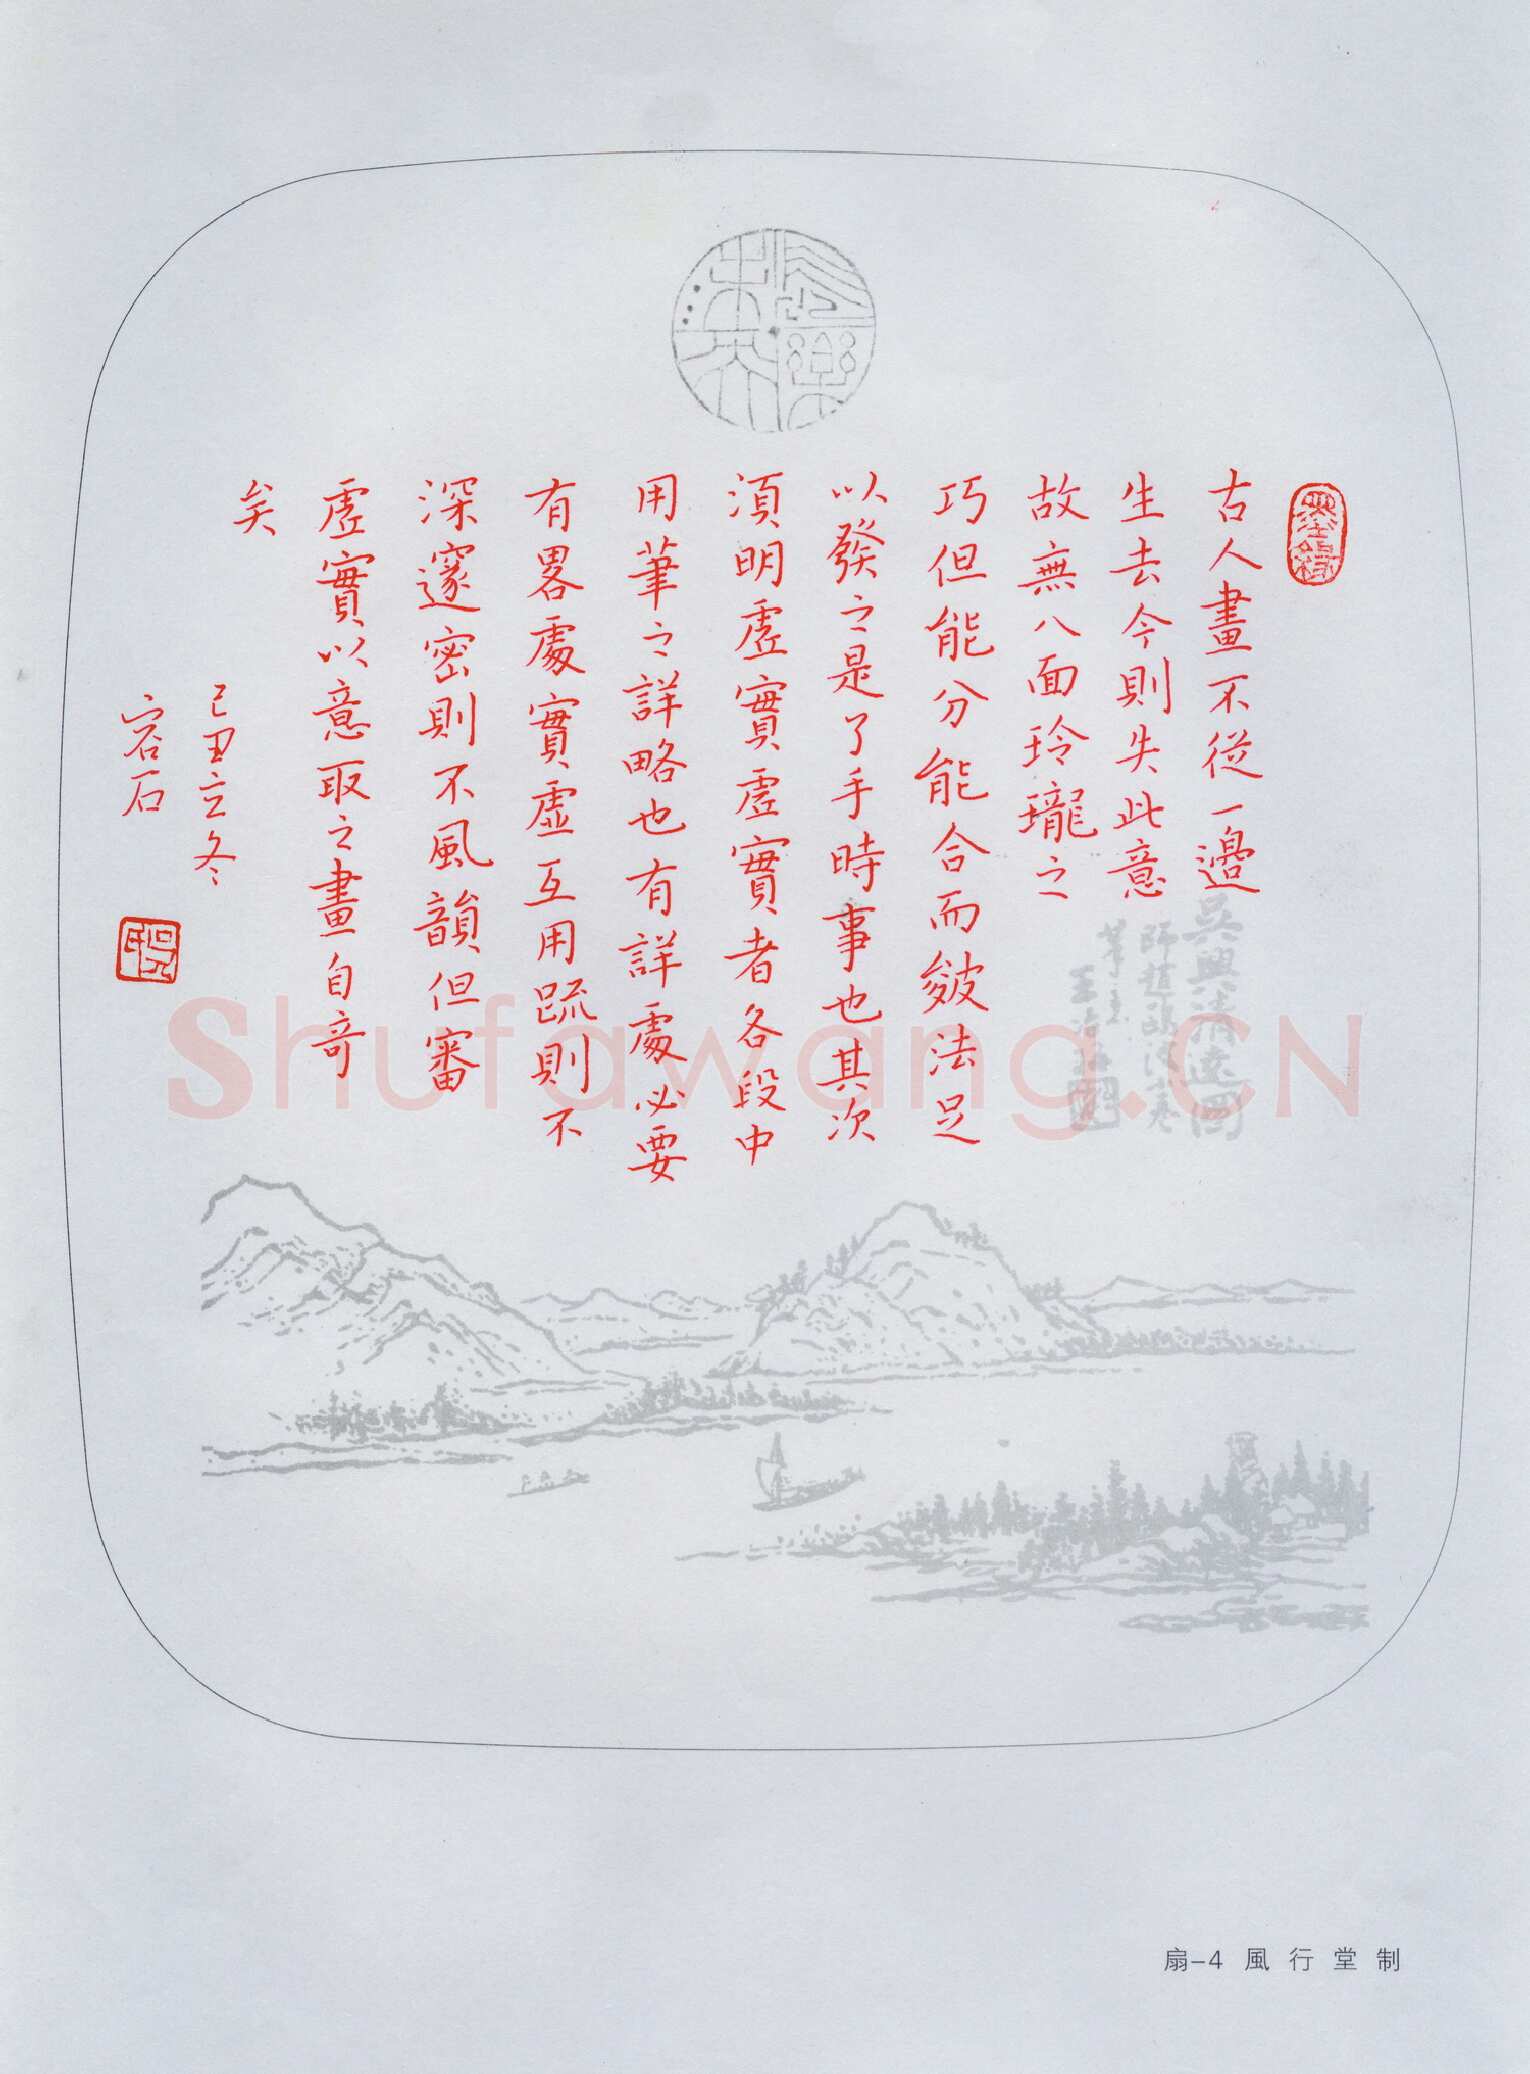 古人畫不從一邊
生去今則失此意
故無八面玲瓏之
巧但能分能合而皴法足
以發之是了手時事也其次
須明虛實虛實者各段中
用筆之詳略也有詳處必要
有畧處實虛互用疏則不
深邃密則不風韻但審
虛實以意取之畫自奇
矣
己丑立冬
容石
吳興清遠圖
Shufawang.CN
扇-4 風行堂制